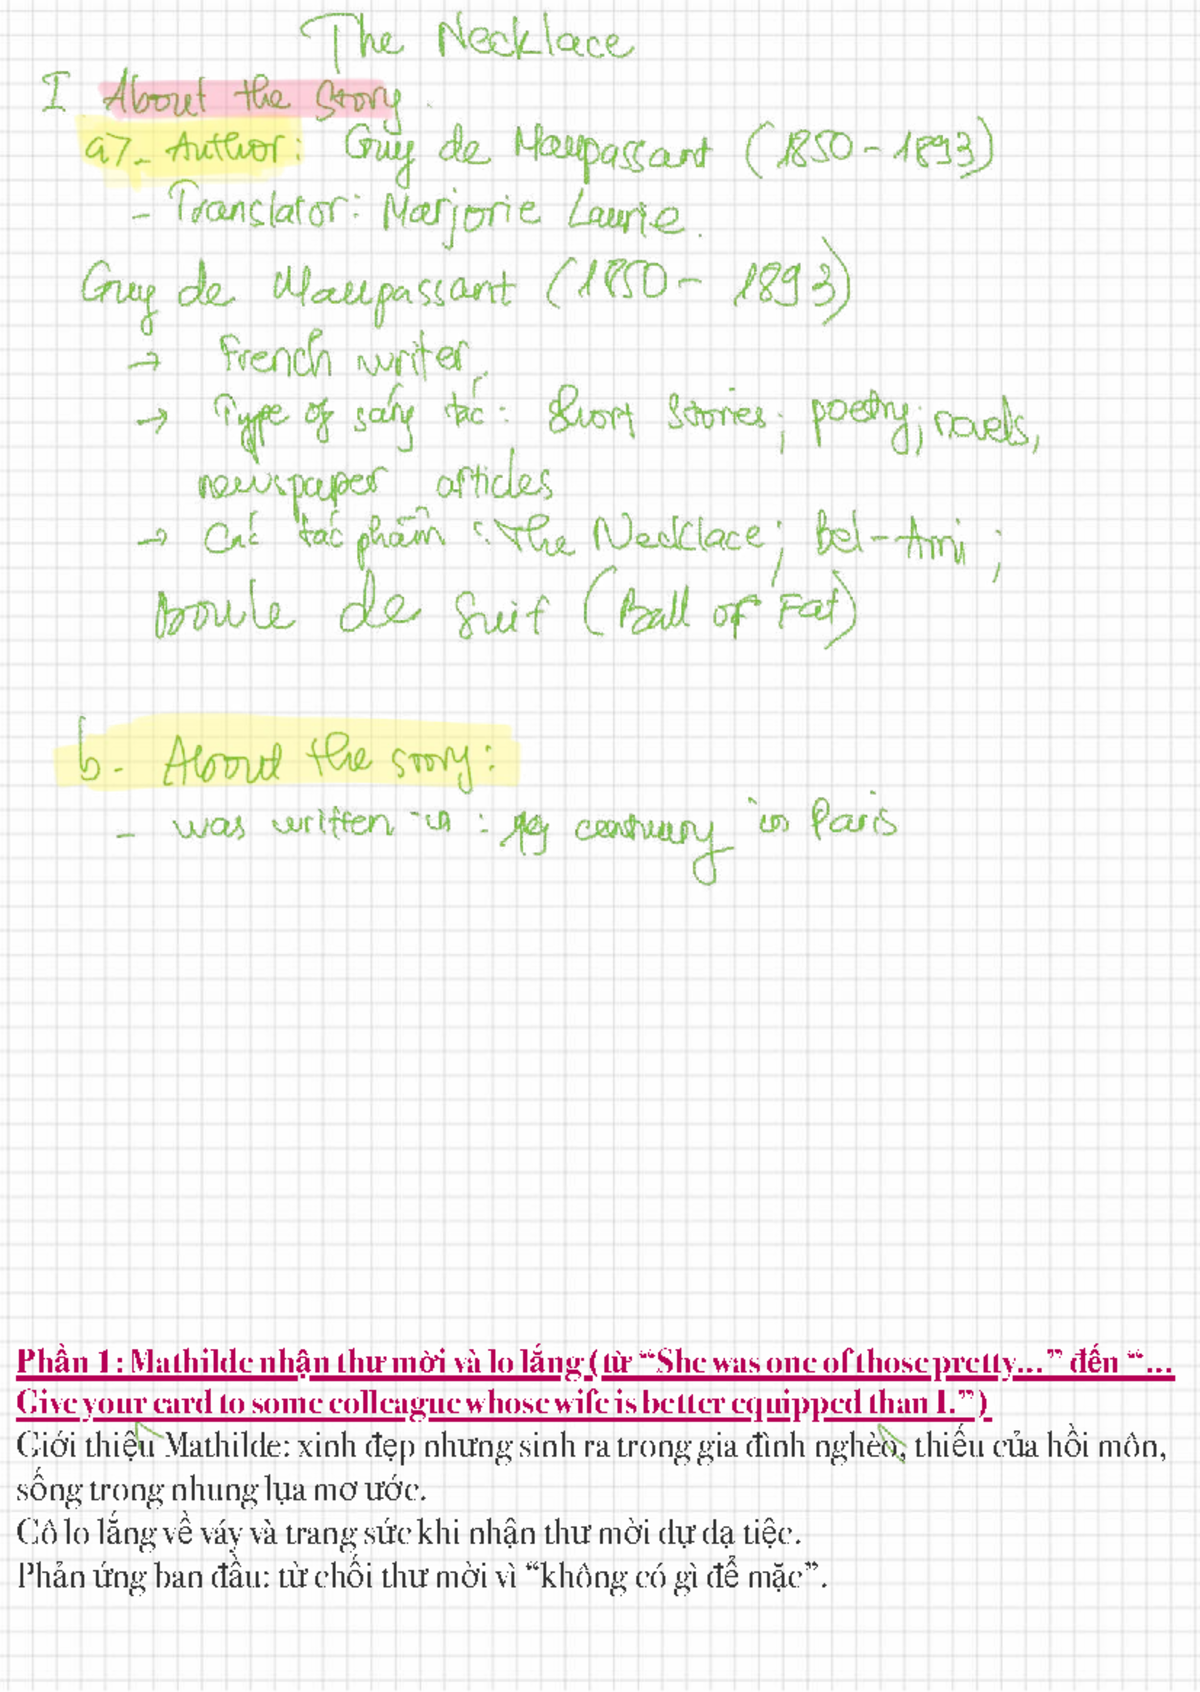 The Necklace
I About the Story.
a7- Author: Guy de Maupassant (1850-1893)
- Translator: Marjorie Laurie.
Guy de Maupassant (1850- 1893)
→ French writer.
→ Type of sáng tác: Short stories; poetry; novels,
newspaper articles
→ Các tác phẩm: The Necklace; Bel-Ami;
Boule de Suif (Ball of Fat)
b- About the story:
- was written in: 19 century in Paris
Phần 1: Mathilde nhận thư mời và lo lắng (từ “She was one of those pretty…” đến “…
Give your card to some colleague whose wife is better equipped than I.”)
Giới thiệu Mathilde: xinh đẹp nhưng sinh ra trong gia đình nghèo, thiếu của hồi môn,
sống trong nhung lụa mơ ước.
Cô lo lắng về váy và trang sức khi nhận thư mời dự dạ tiệc.
Phản ứng ban đầu: từ chối thư mời vì “không có gì để mặc”.